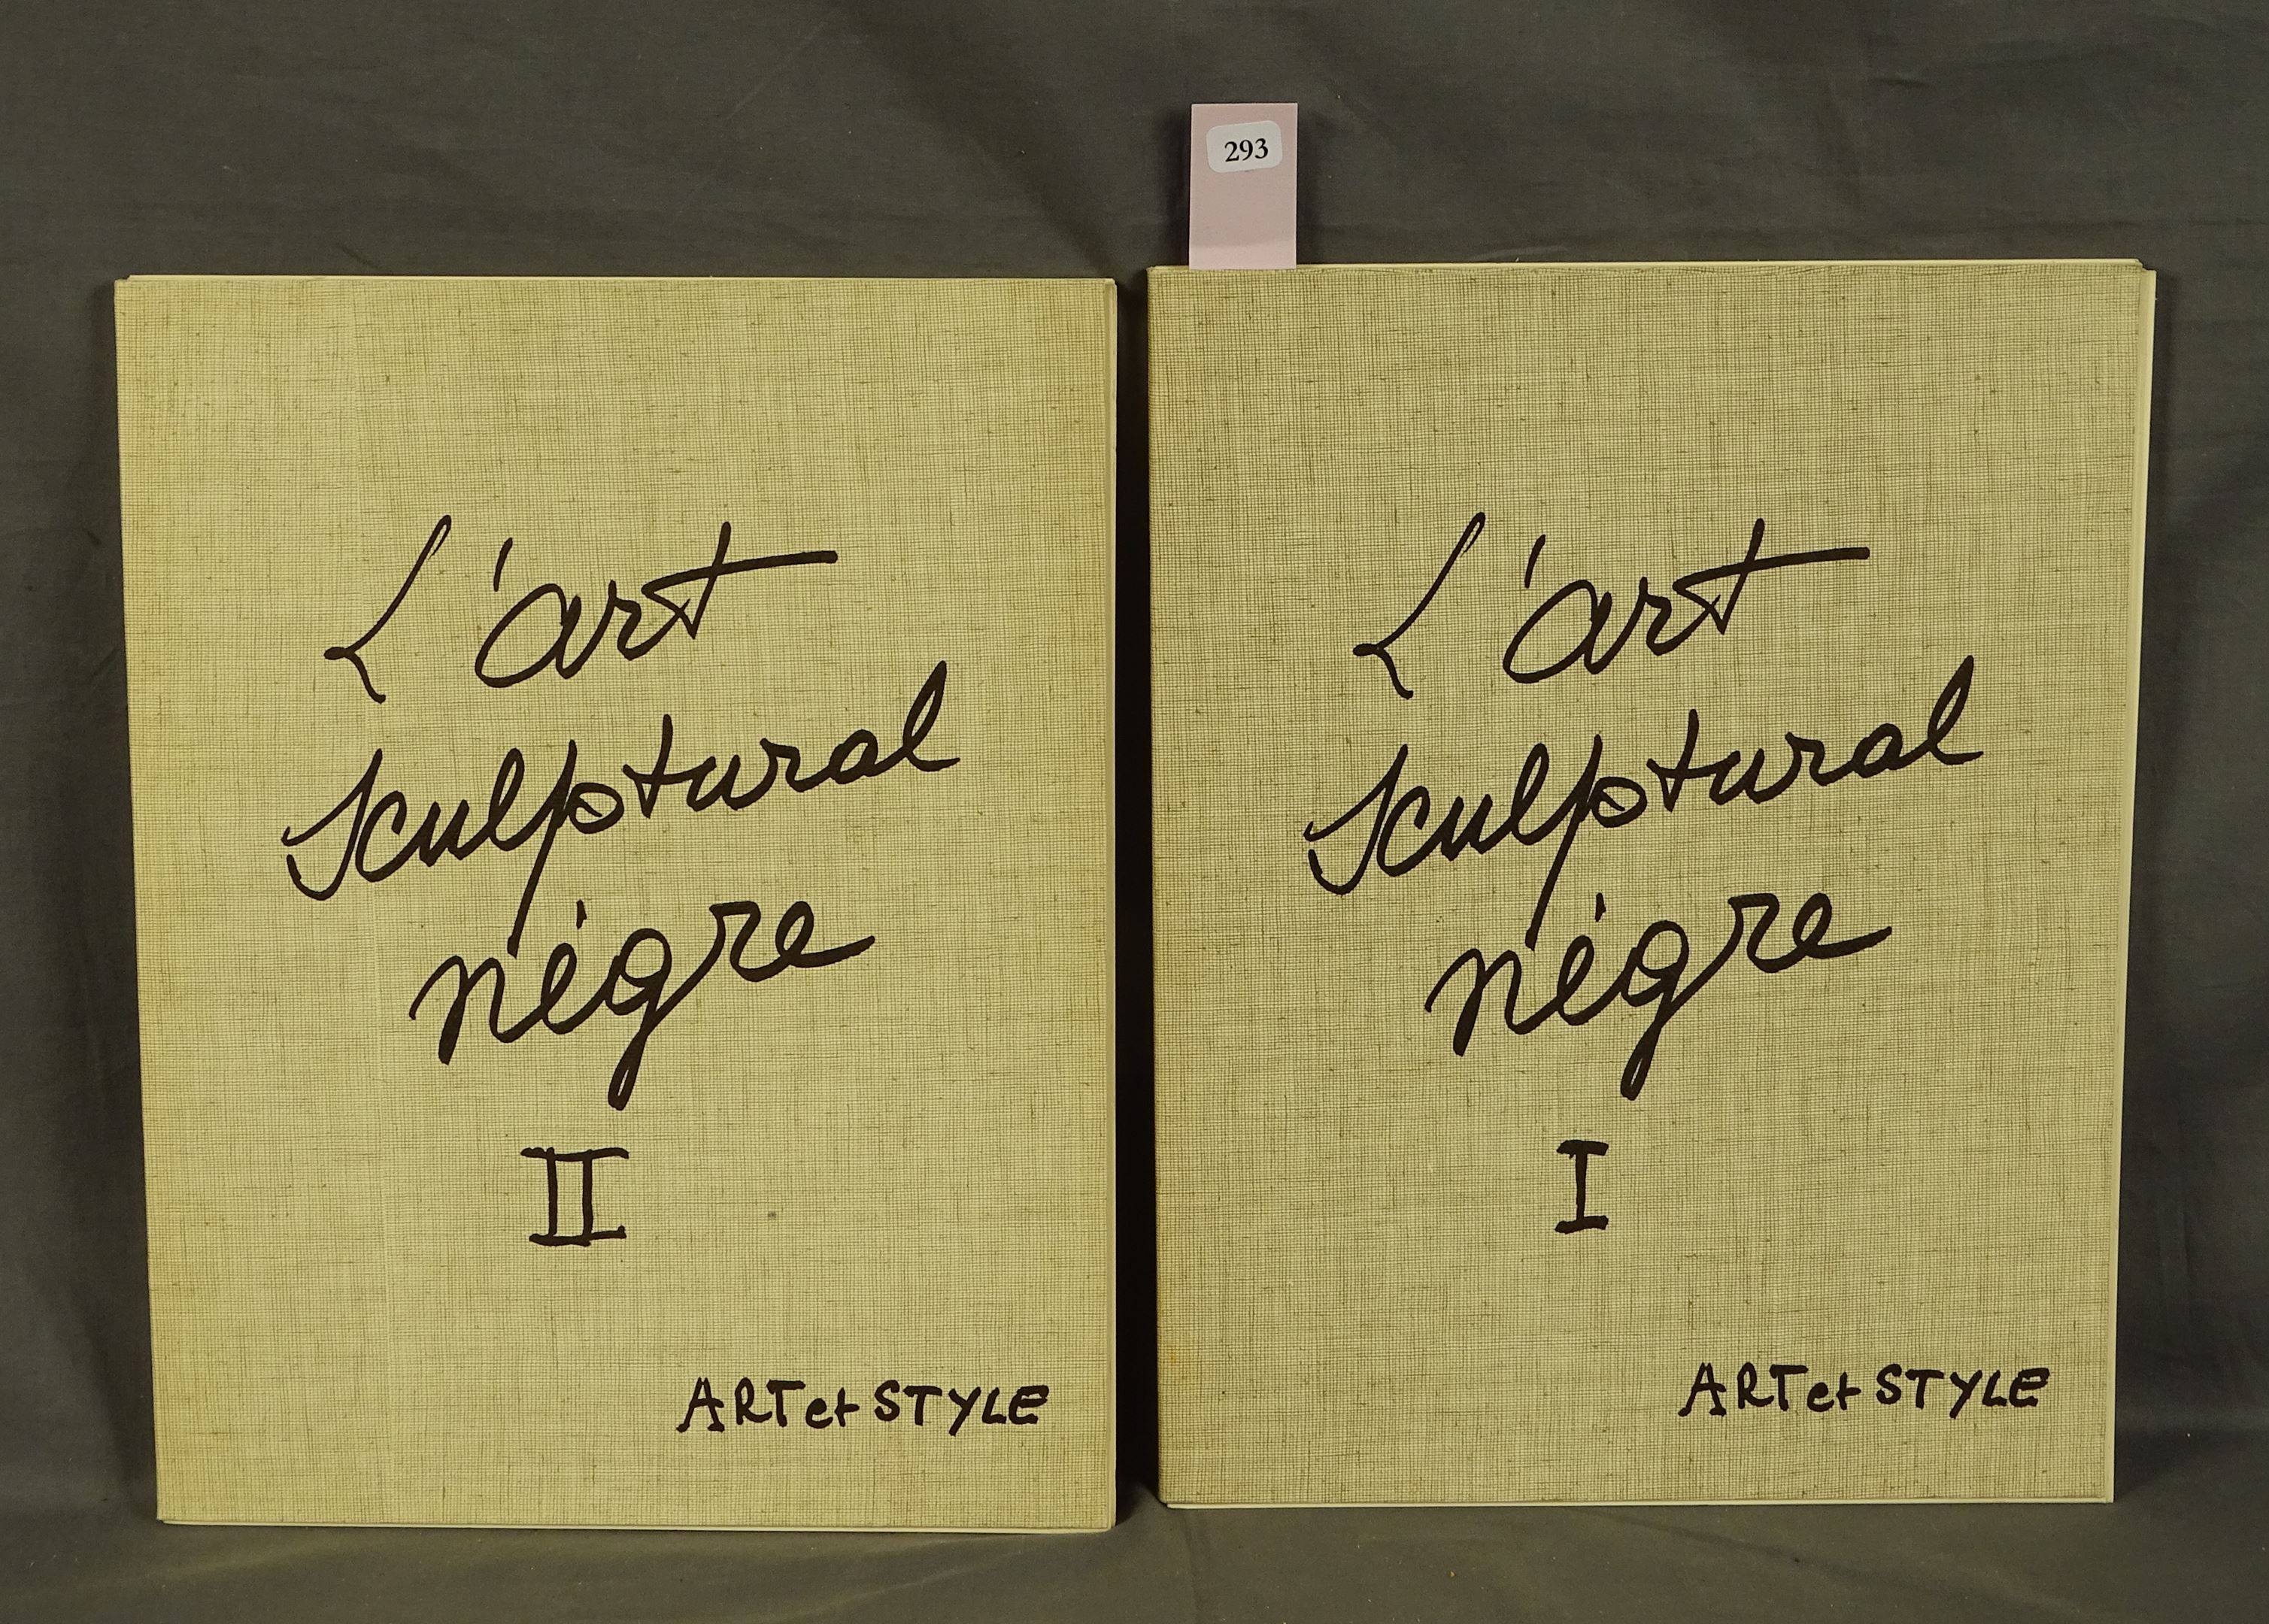 293
L'art
sculptural
nègre
II
ART et STYLE
L'art
sculptural
nègre
I
ART et STYLE